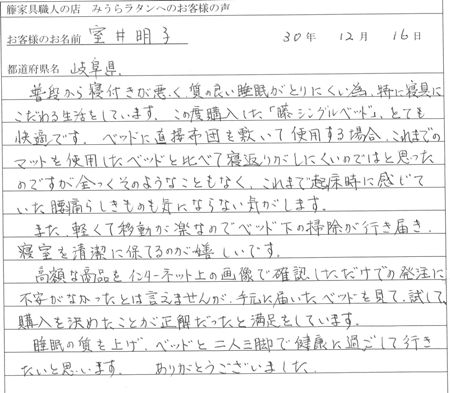 籐家具職人の店　みうらラタンへのお客様の声
お客様のお名前　室井明子　30年　12月　16日
都道府県名　岐阜県
普段から寝付きが悪く、質の良い睡眠がとりにくい為、特に寝具に
こだわる生活をしています。この度購入した「藤シングルベッド」、とても
快適です。ベッドに直接布団を敷いて使用する場合、これまでの
マットを使用したベッドと比べて寝返りがしにくいのではと思った
のですが全っくそのようなこともなく、これまで起床時に感じて
いた腰痛らしきものも気にならない気がします。
また、軽くて移動が楽なのでベッド下の掃除が行き届き、
寝室を清潔に保てるのが嬉しいです。
高額な商品をインターネット上の画像で確認しただけでの発注に
不安がなかったとは言えませんが、手元に届いたベッドを見て、試して、
購入を決めたことが正解だったと満足をしています。
睡眠の質を上げ、ベッドと二人三脚で健康に過ごして行き
たいと思います。　ありがとうございました。